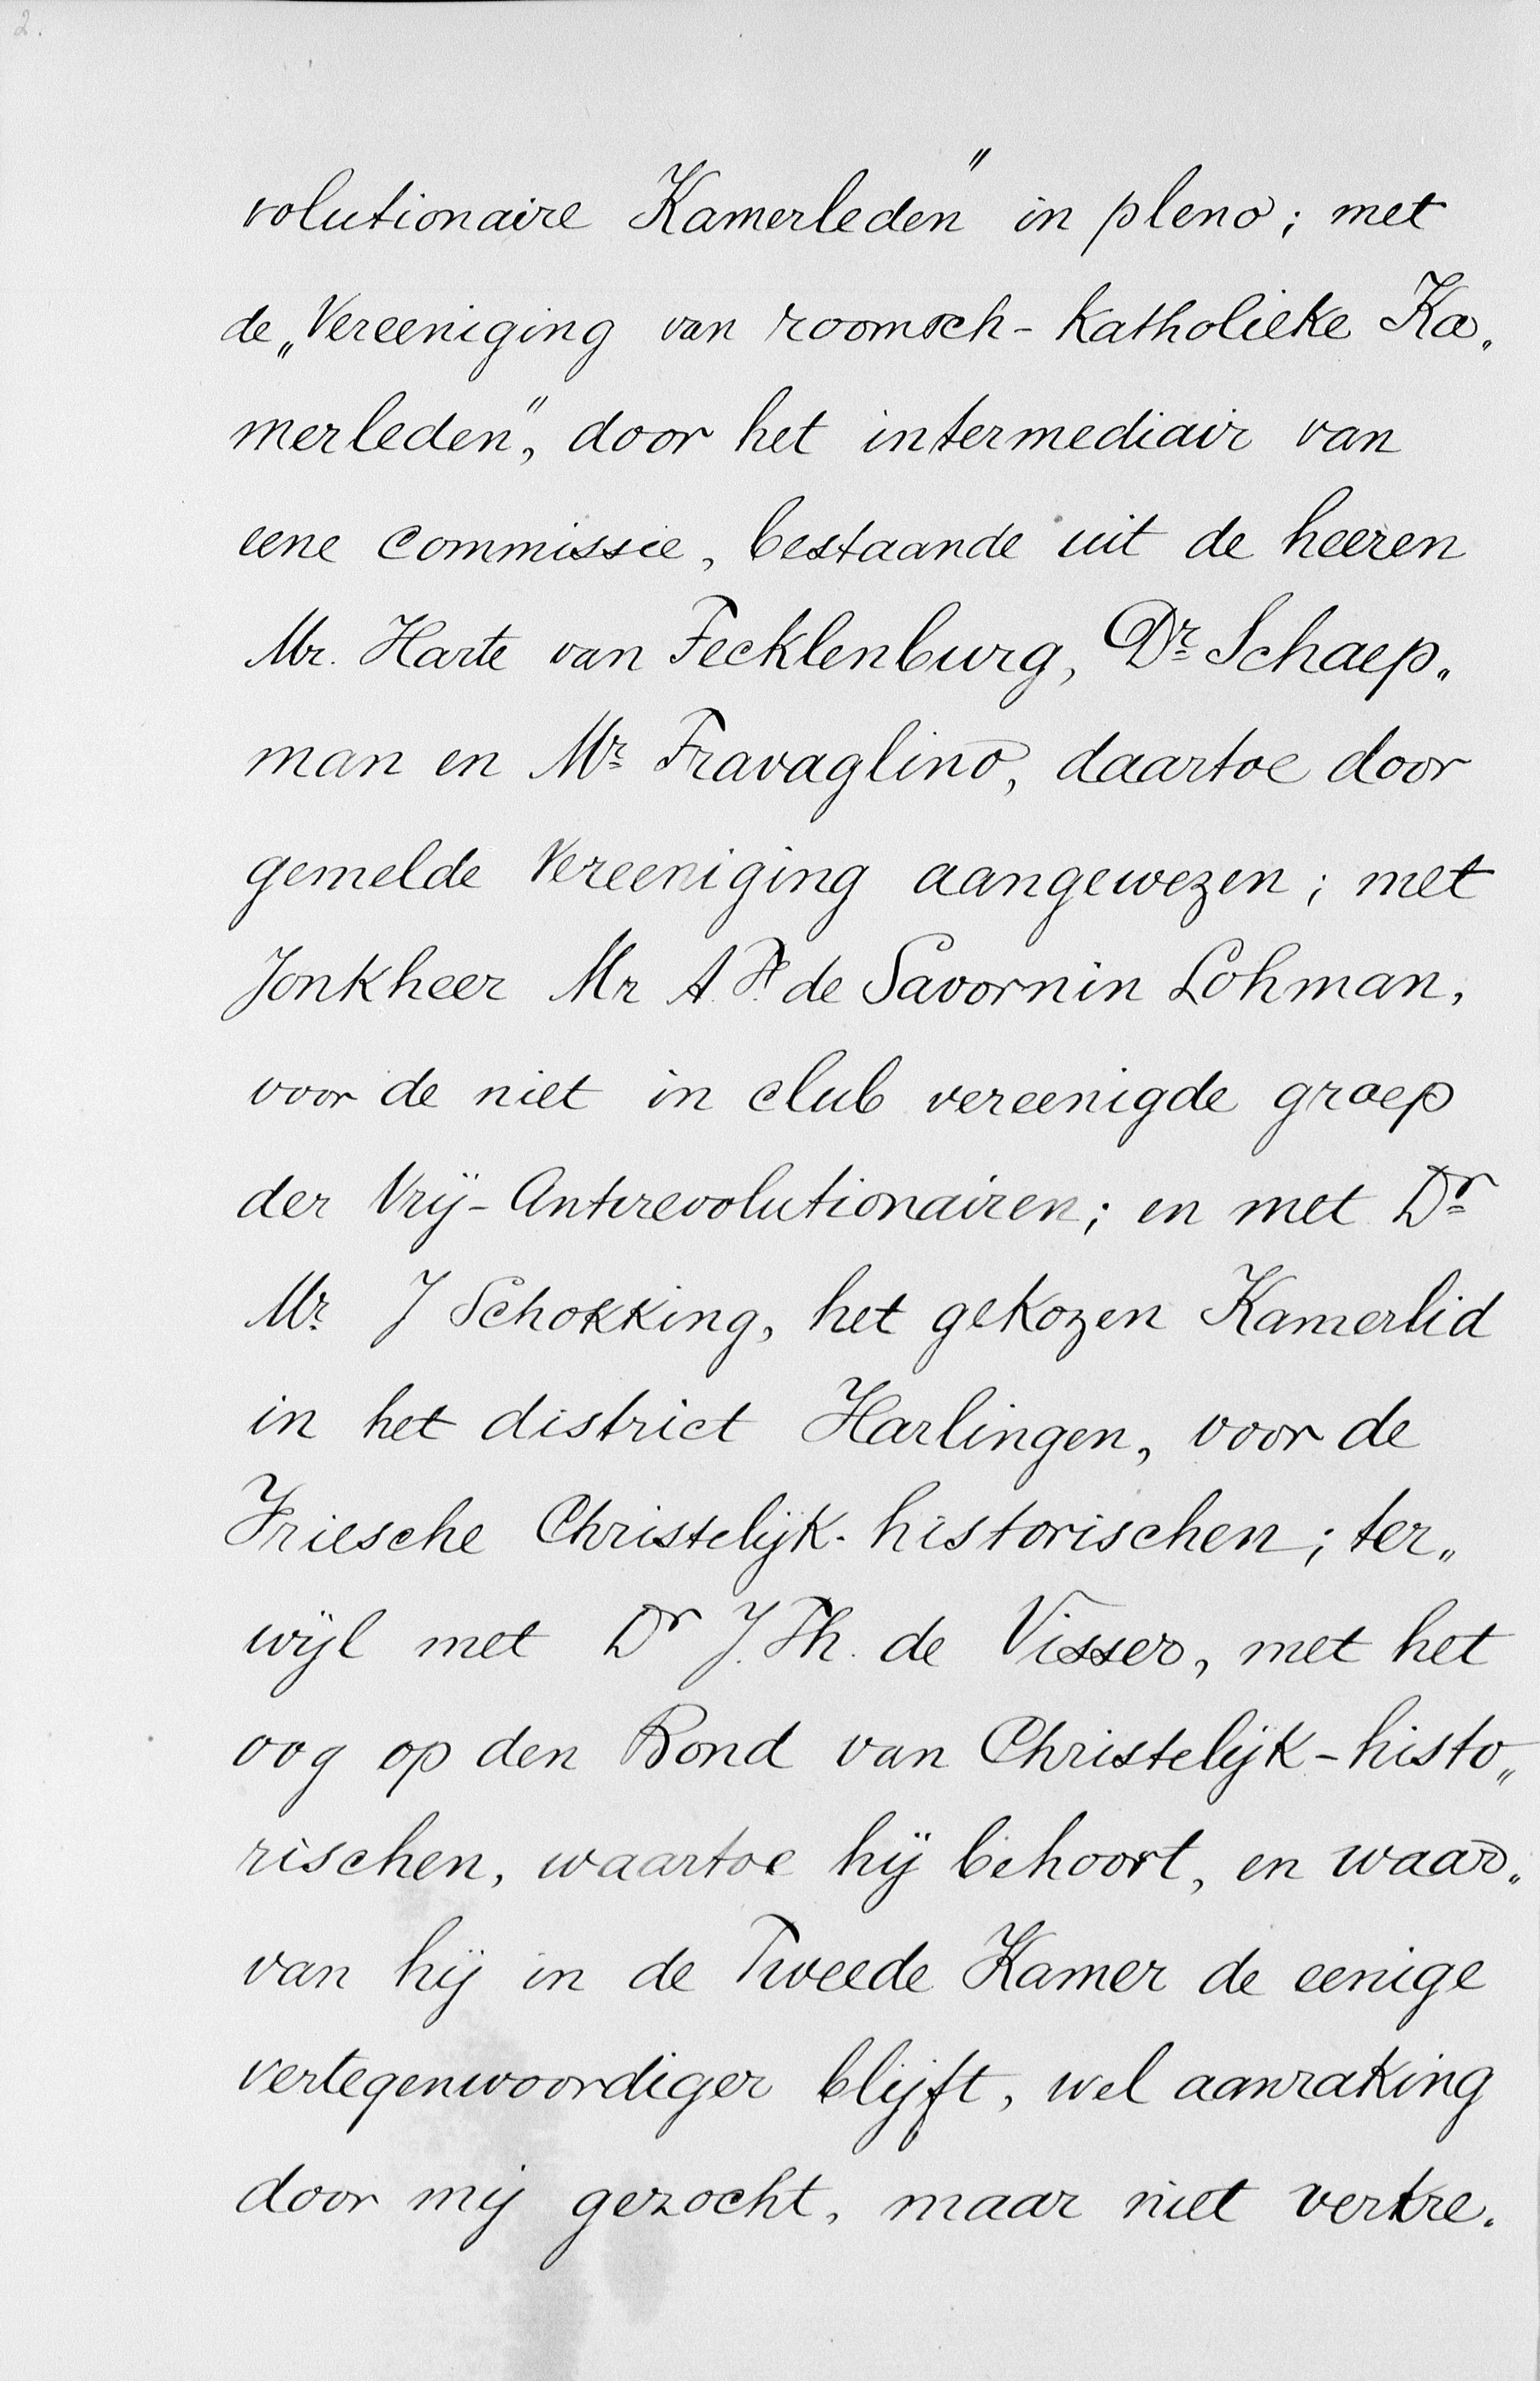 2.
volutionaire Kamerleden" in pleno; met
de „Vereeniging van roomsch-Katholieke Ka„
merleden", door het intermediair van
eene commissie, bestaande uit de heeren
Mr. Harte van Tecklenburg, Dr Schaep„
man en Mr Travaglino, daartoe door
gemelde Vereeniging aangewezen; met
Jonkheer Mr A. F. de Savornin Lohman,
voor de niet in club vereenigde groep
der Vrij-Antirevolutionairen; en met Dr
Mr. J Schokking, het gekozen Kamerlid
in het district Harlingen, voor de
Friesche Christelijk-historischen; ter„
wijl met Dr J. Th. de Visser, met het
oog op den Bond van Christelijk-histo„
rischen, waartoe hij behoort, en waar„
van hij in de Tweede Kamer de eenige
vertegenwoordiger blijft, wel aanraking
door mij gezocht, maar niet verkre„